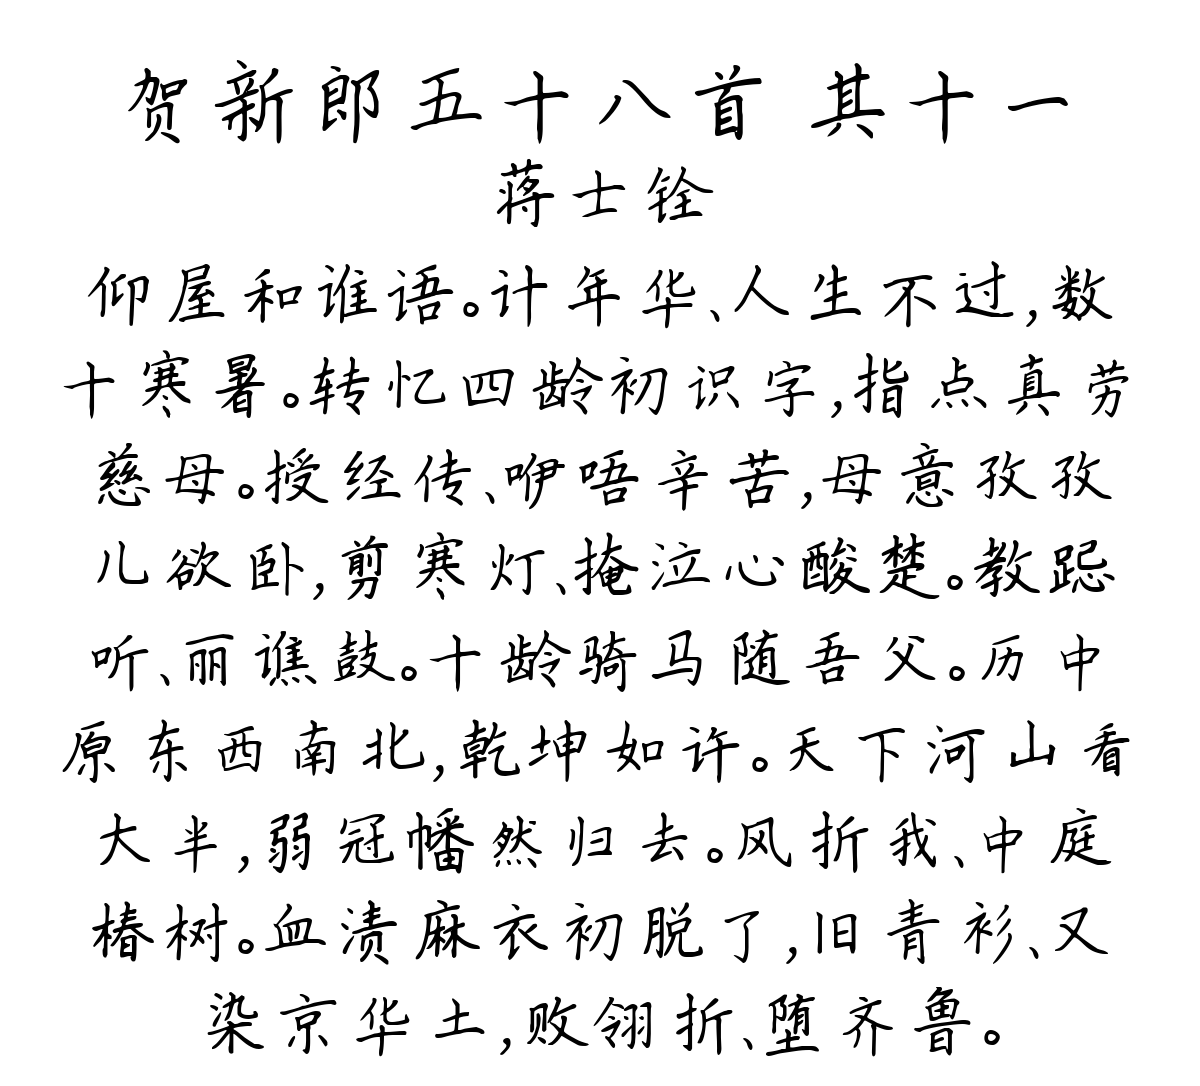 贺新郎五十八首 其十一
蒋士铨
仰屋和谁语。计年华、人生不过,数
十寒暑。转忆四龄初识字,指点真劳
慈母。授经传、咿唔辛苦,母意孜孜
儿欲卧,剪寒灯、掩泣心酸楚。教跽
听、丽谯鼓。十龄骑马随吾父。历中
原东西南北,乾坤如许。天下河山看
大半,弱冠幡然归去。风折我、中庭
椿树。血渍麻衣初脱了,旧青衫、又
染京华土,败翎折、堕齐鲁。